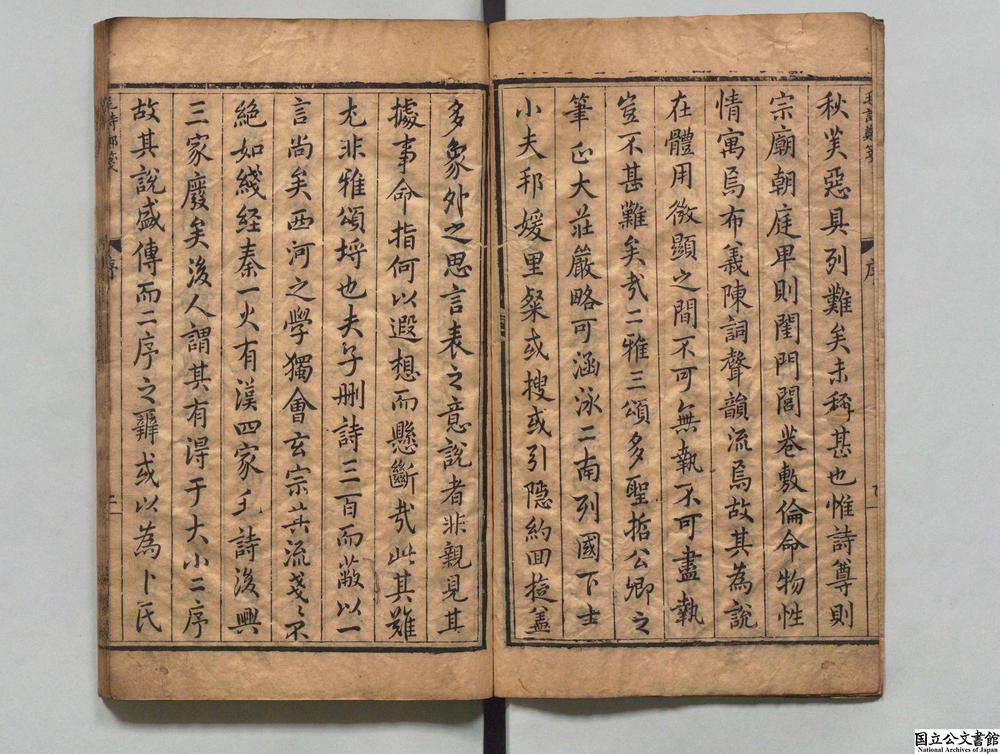 秋美惡具列難矣未稱甚也惟詩尊則
宗廟朝庭卑則閨門閭巷敷倫命物性
情寓焉布義陳詞聲韻流焉故其為說
在體用微顯之間不可無執不可盡執
豈不甚難矣哉二雅三頌多聖哲公卿之
筆正大莊嚴略可涵泳二南列國下士
小夫邦媛里粲或搜或引隱約回撓蓋
多象外之思言表之意說者非親見其
據事命指何以遐想而懸斷哉此其難
尤非雅頌埒也夫子刪詩三百而蔽以一
言尚矣西河之學獨會玄宗其流戔戔不
絕如綫經秦一火有漢四家毛詩後興
三家廢矣後人謂其有淂于大小二序
故其說盛傳而二序之辯或以為卜氏
毛詩鄭箋
序
二
毛詩鄭箋
序
国立公文書館
National Archives of Japan